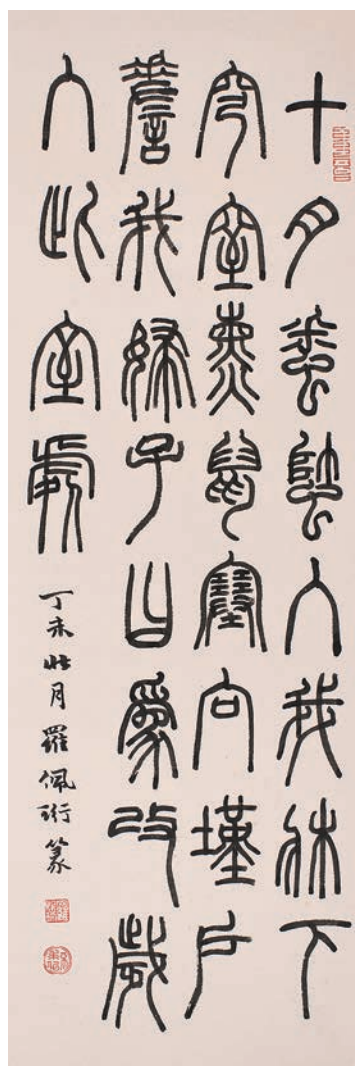 十月蟋蟀入我牀下
穹窒熏鼠塞向墐戶
嗟我婦子曰爲改歲
入此室處
丁未壯月羅佩珩篆